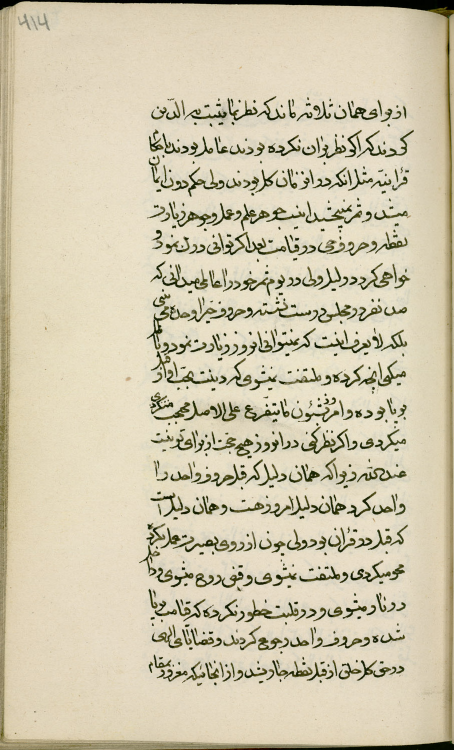 414
از برای همان ثلاثه ماند که نظر بما یثبت به الدین
کردند که اگر نظر بر آن نکرده بودند عامل بودند باحکام
قرآنیه مثل آنکه در آن زمان کل بودند ولی حکم دون ایمان
میشد و ثمر نمی‌بخشید اینست جوهر علم و عمل و جوهر زیارت
نقطه و حروف حی در قیامت بعد اگر توانی درک نمود و
خواهی کرد در لیل ولی در یوم ثمر خود را عالمی میدانی که
صد نفر در مجلس درست نشسته و حروف حی را واحد
بلکه لا یعرف اینست که نمیتوانی آن روز زیارت نمود و یا
میکنی آنچه کرده و ملتفت نمیشوی که دینت بحب او از
بر پا بوده و امروز شئون ما یتفرع علی الاصل محتجب
میگردی و اگر نظر کنی در آن روز هیچ حجت از برای تو نیست
عند الله زیرا که همان دلیل که قبل حروف واحد را
واحد کرد همان دلیل امروز هست و همان دلیل است
که قبل در قرآن بود ولی چون از روی بصیرت عمل نکرده
محو میگردی و ملتفت نمیشوی وقتی روح میشوی و
در نار میشوی و در قلبت خطور نکرده که قیامت بر پا
شده و حروف واحد رجوع کردند و قضایای الهی
در حق کل خلق از قبل نقطه جاری شد و از آنجائیکه مغرور بمقام